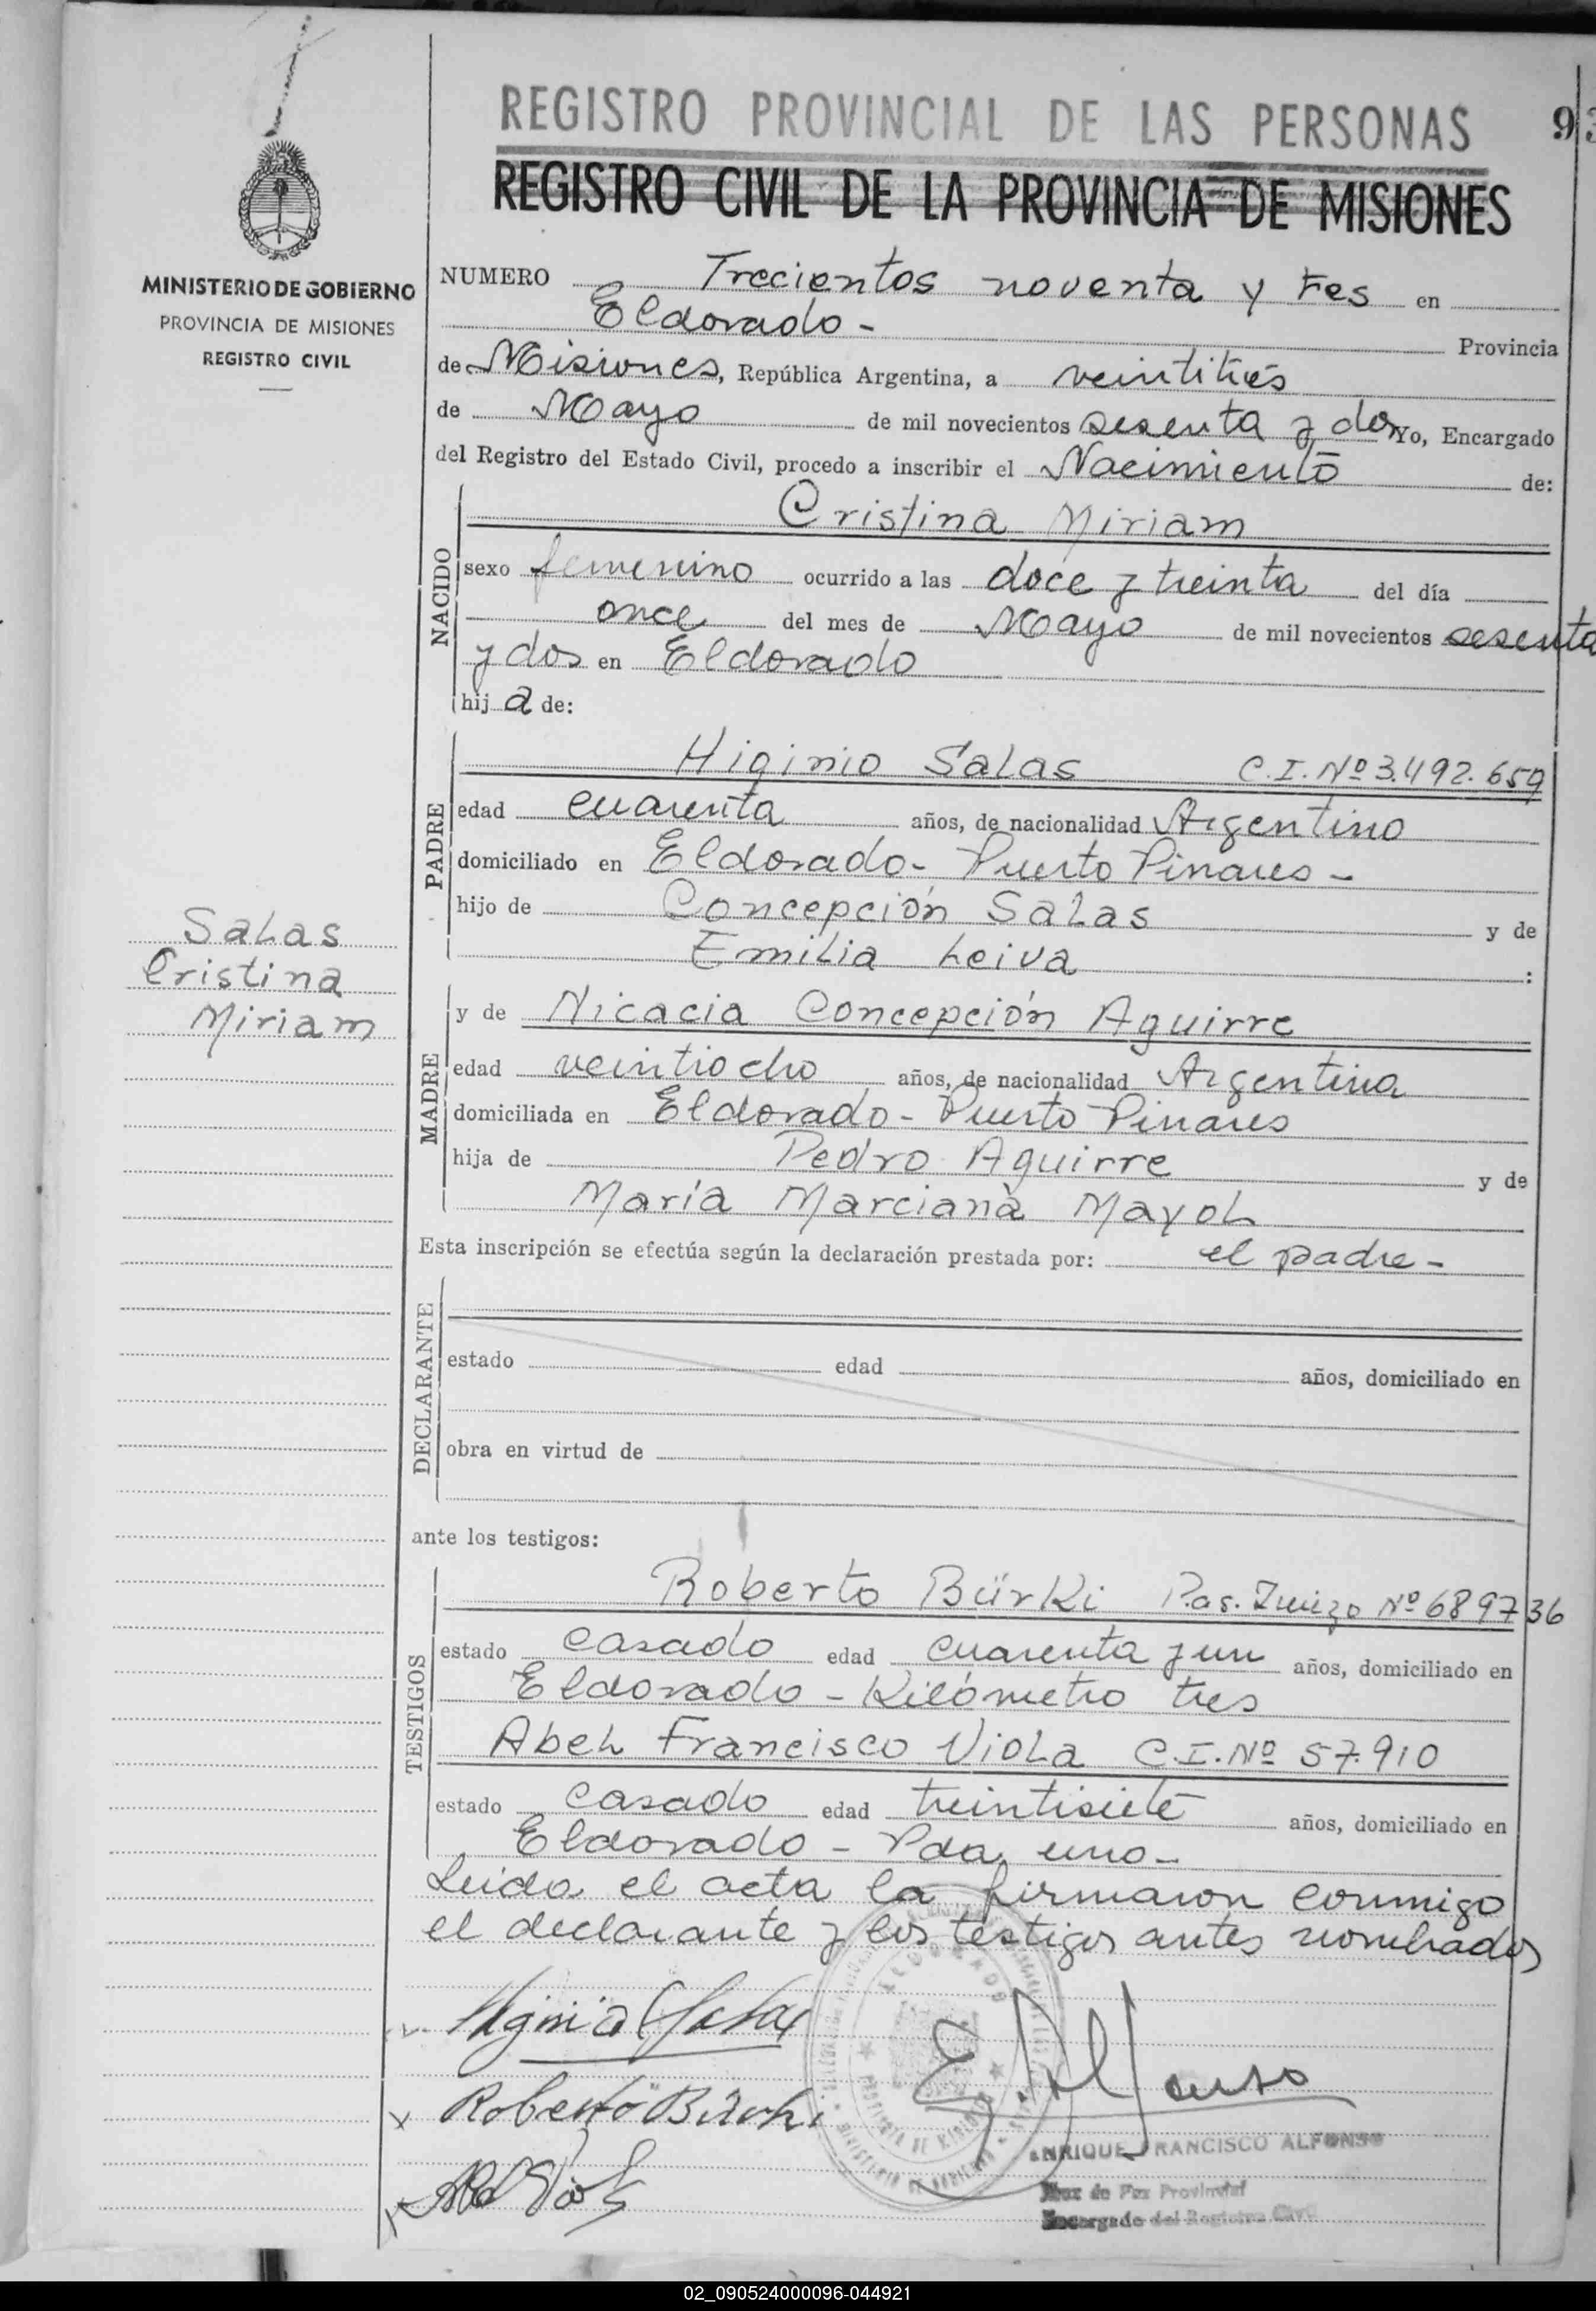 REGISTRO PROVINCIAL DE LAS PERSONAS
REGISTRO CIVIL DE LA PROVINCIA DE MISIONES
MINISTERIO DE GOBIERNO
PROVINCIA DE MISIONES
REGISTRO CIVIL
NUMERO Trecientos noventa y tres en
Eldorado - Provincia
de Misiones, República Argentina, a veintitrés
de Mayo de mil novecientos sesenta y dos Yo, Encargado
del Registro del Estado Civil, procedo a inscribir el Nacimiento de:
NACIDO
Cristina Miriam
sexo femenino ocurrido a las doce y treinta del día
once del mes de Mayo de mil novecientos sesenta
y dos en Eldorado
hij a de:
PADRE
Higinio Salas C.I. Nº 3.492.659
edad cuarenta años, de nacionalidad Argentino
domiciliado en Eldorado - Puerto Pinares -
hijo de Concepción Salas y de
Emilia Leiva :
Salas
Cristina
Miriam
MADRE
y de Nicacia Concepción Aguirre
edad veintiocho años, de nacionalidad Argentina
domiciliada en Eldorado - Puerto Pinares
hija de Pedro Aguirre y de
María Marciana Mayol
Esta inscripción se efectúa según la declaración prestada por: el padre -
DECLARANTE
estado edad años, domiciliado en
obra en virtud de
ante los testigos:
TESTIGOS
Roberto Bürki Pas. Suizo Nº 689736
estado casado edad cuarenta y un años, domiciliado en
Eldorado - Kilómetro tres
Abel Francisco Viola C.I. Nº 57.910
estado casado edad treintisiete años, domiciliado en
Eldorado - Pda. uno -
Leida el acta la firmaron conmigo
el declarante y los testigos antes nombrados
Higinio Salas
Roberto Bürki
E. Alfonso
ENRIQUE FRANCISCO ALFONSO
Juez de Paz Provincial
Encargado del Registro Civil
02_090524000096-044921